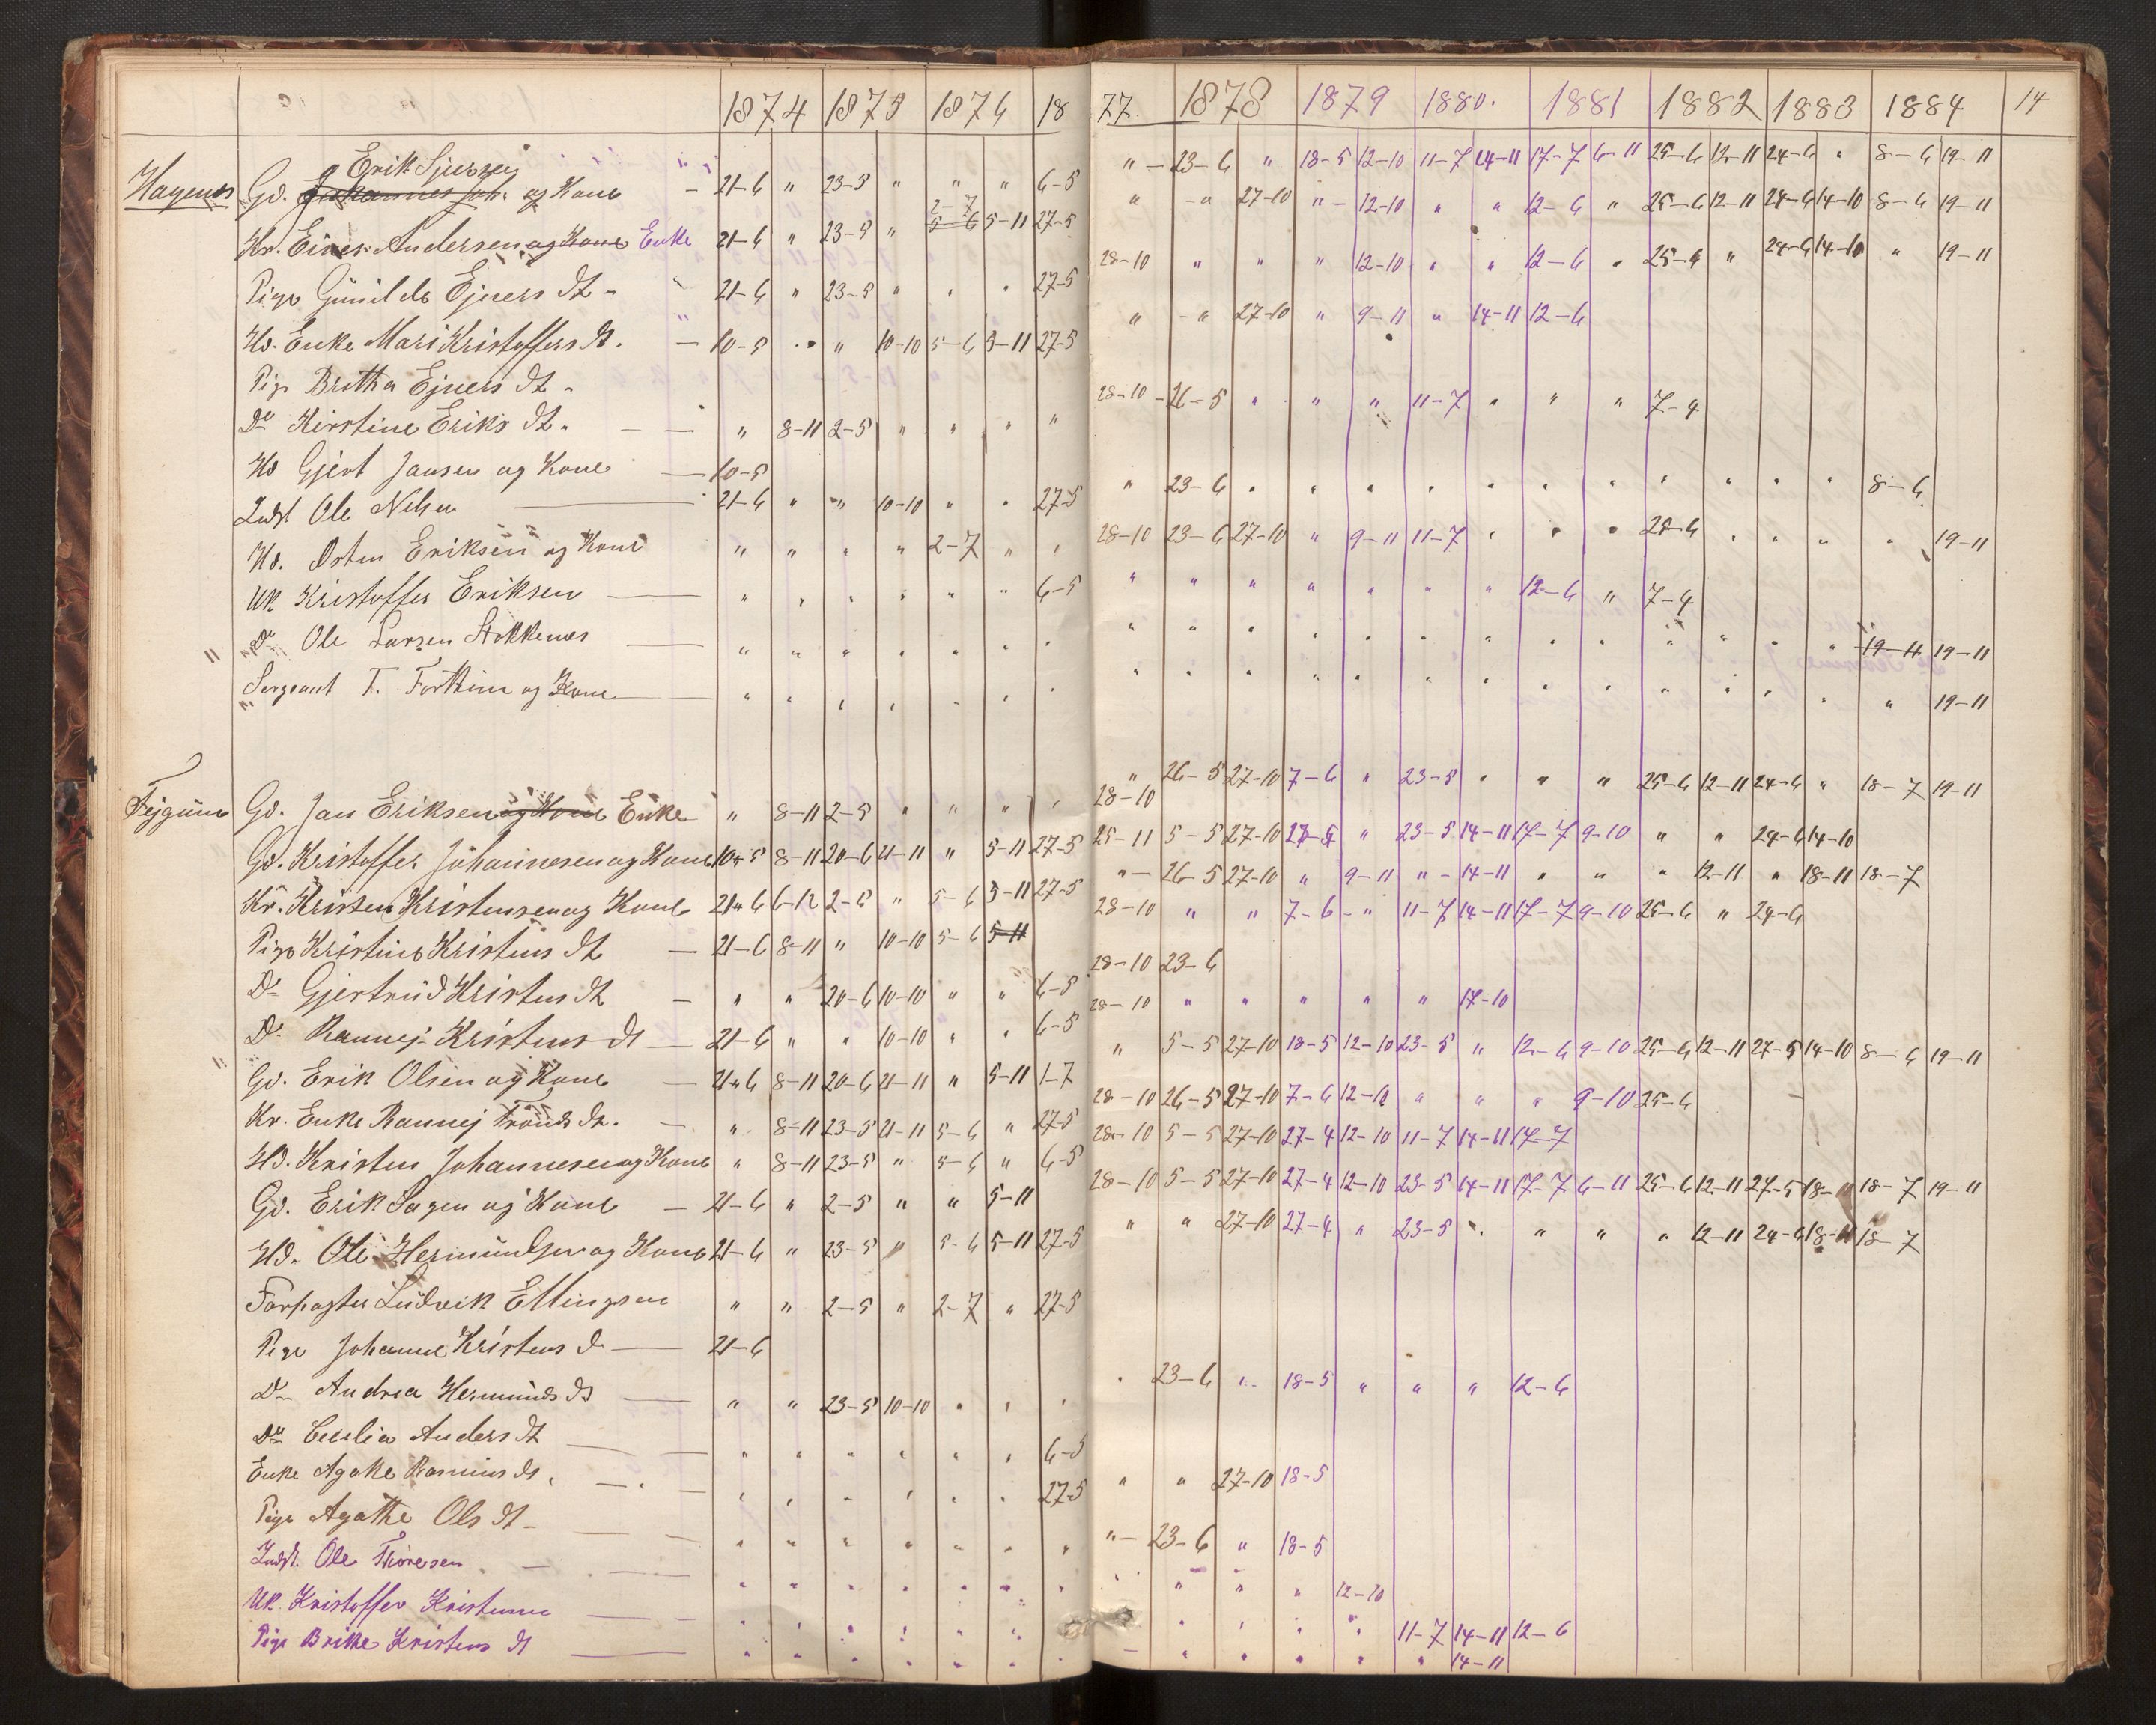 1874 1875 1876 18 77. 1878 1879 1880. 1881 1882 1883 1884 14
Erik Sjursen
Hagenes Gd. Johannes Joh. og Kone — 21-6 " 23-5 " " " 6-5 " — 23-6 " 18-5 12-10 11-7 14-11 17-7 6-11 25-6 12-11 24-6 " 8-6 19-11
2-7
Kr. Einer Andersen og Kone Enke 21-6 " 23-5 " 5-6 5-11 27-5 " " 27-10 " 12-10 " " 12-6 " 25-6 12-11 24-6 14-10 8-6 19-11
Pige Gunilde Ejners dt - 21-6 " 23-5 " " " 27-5 28-10 " " " 12-10 " " 12-6 " 25-6 " 24-6 14-10 " 19-11
Hd. Enke Mari Kristoffers dt. — 10-5 " " 10-10 5-6 5-11 27-5 " " 27-10 " 9-11 " 14-11 12-6
Pige Britha Ejners dt -
Do Kirstine Eriks dt. — — " 8-11 2-5 " " " " 28-10 26-5 " " " 11-7 " " " 7-4
Hd Gjert Jansen og Kone — 10-5
Indst Ole Nilsen — 21-6 " " 10-10 " " 27-5 " 23-6 " " " " " " " " " " " 8-6
Hd. Østen Eriksen og Kone " " " " 2-7 " " 28-10 23-6 27-10 " 9-11 11-7 " " " 25-6 " " " " 19-11
UK Kristoffer Eriksen — " " " " " " 6-5 " " " " " " " 12-6 " 7-4
" Do Ole Larsen Stokkenes — " " " " " " " " " " " " " " " " " " " " 19-11 19-11
Sergeant T. Forthun og Kone — " " " " " " " " " " " " " " " " " " " " " 19-11
Fejgum Gd. Jan Eriksen og Kone Enke " 8-11 2-5 " " " " 28-10 " 26-5 27-10 7-6 " 23-5 " " " 25-6 12-11 24-6 " 18-7 19-11
Gd. Kristoffer Johannesen og Kone 10-5 8-11 20-6 21-11 " 5-11 27-5 25-11 5-5 27-10 27-5 " 23-5 14-11 17-7 9-10 " " 24-6 14-10
Kr. Kristen Kristensen og Kone 21-6 6-12 2-5 " 5-6 5-11 27-5 " — 26-5 27-10 " 9-11 " 14-11 " " " 12-11 " 18-11 18-7
Pige Kristine Kristens dt — 21-6 8-11 " 10-10 5-6 5-11 28-10 " " 7-6 " 11-7 14-11 17-7 9-10 25-6 " 24-6
Do Gjertrud Kristens dt — " " 20-6 10-10 " " 6-5 28-10 23-6
Do Rannej Kristens dt — 21-6 " " 10-10 " " 6-5 28-10 " " " " " 17-10
Gd. Erik Olsen og Kone — 21-6 8-11 20-6 21-11 " 5-11 1-7 " 5-5 27-10 18-5 12-10 23-5 " 12-6 9-10 25-6 12-11 27-5 14-10 8-6 19-11
Kr. Enke Rannej Tronds dt. — " 8-11 23-5 21-11 5-6 " 27-5 28-10 26-5 27-10 7-6 12-10 " " " 9-10 25-6
Hd. Kristen Johannesen og Kone " 8-11 23-5 " 5-6 " 6-5 28-10 5-5 27-10 27-4 12-10 11-7 14-11 17-7
Gd. Erik Sagen og Kone — 21-6 " 2-5 " " 5-11 28-10 5-5 27-10 27-4 12-10 23-5 14-11 17-7 6-11 25-6 12-11 27-5 18-11 18-7 19-11
Hd. Ole Hermundsen og Kone 21-6 " 23-5 " 5-6 5-11 27-5 " " 27-10 27-4 " 23-5 " " " " 12-11 24-6 18-11 18-7
Forpagter Ludvik Ellingsen " " 2-5 " 2-7 " 27-5
Pige Johanne Kristens d — 21-6
Do Andrea Hermunds dt — " " 23-5 10-10 " " " " 23-6 " 18-5 " " " 12-6
Do Cecilia Anders dt — " " " " " " 6-5
Enke Agathe Rasmus dt. — " " " " " " 27-5 " " 27-10 18-5
Pige Agathe Ols dt — " " " " " " " " — 23-6 " 18-5
Indst. Ole Thoresen — " " " " " " " " " " " 12-10
UK Kristoffer Kristensen — " " " " " " " " " " " 11-7 14-11 12-6
Pige Brithe Kristens dt — " " " " " " " — " " " " " 14-11